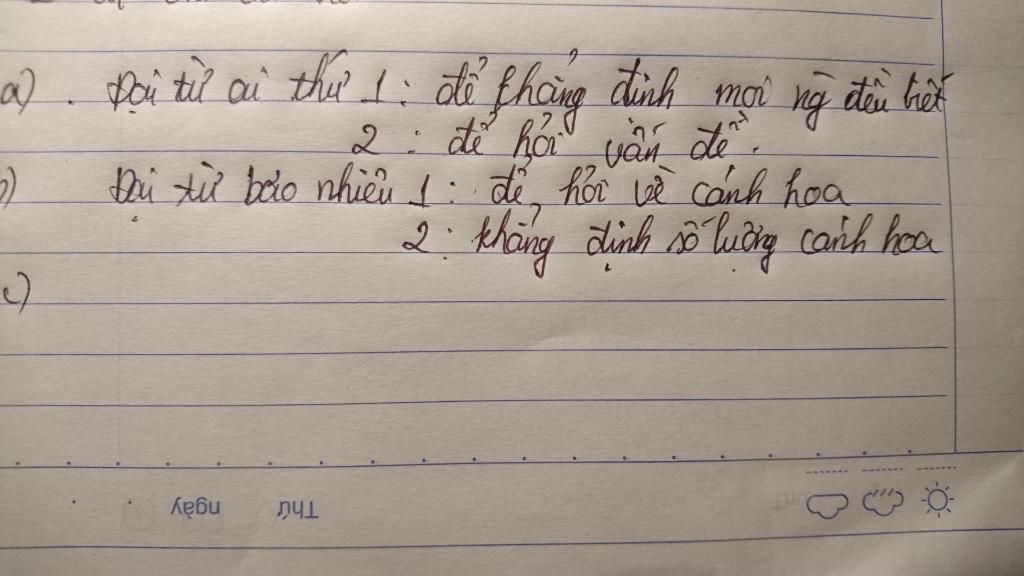 a) . Đại từ ai thứ 1 : để khẳng định mọi ng đều biết
2 : để hỏi vấn đề .
b) Đại từ bao nhiêu 1 : để hỏi về cánh hoa
2 : khẳng định số lượng cánh hoa
c)
Thứ ngày